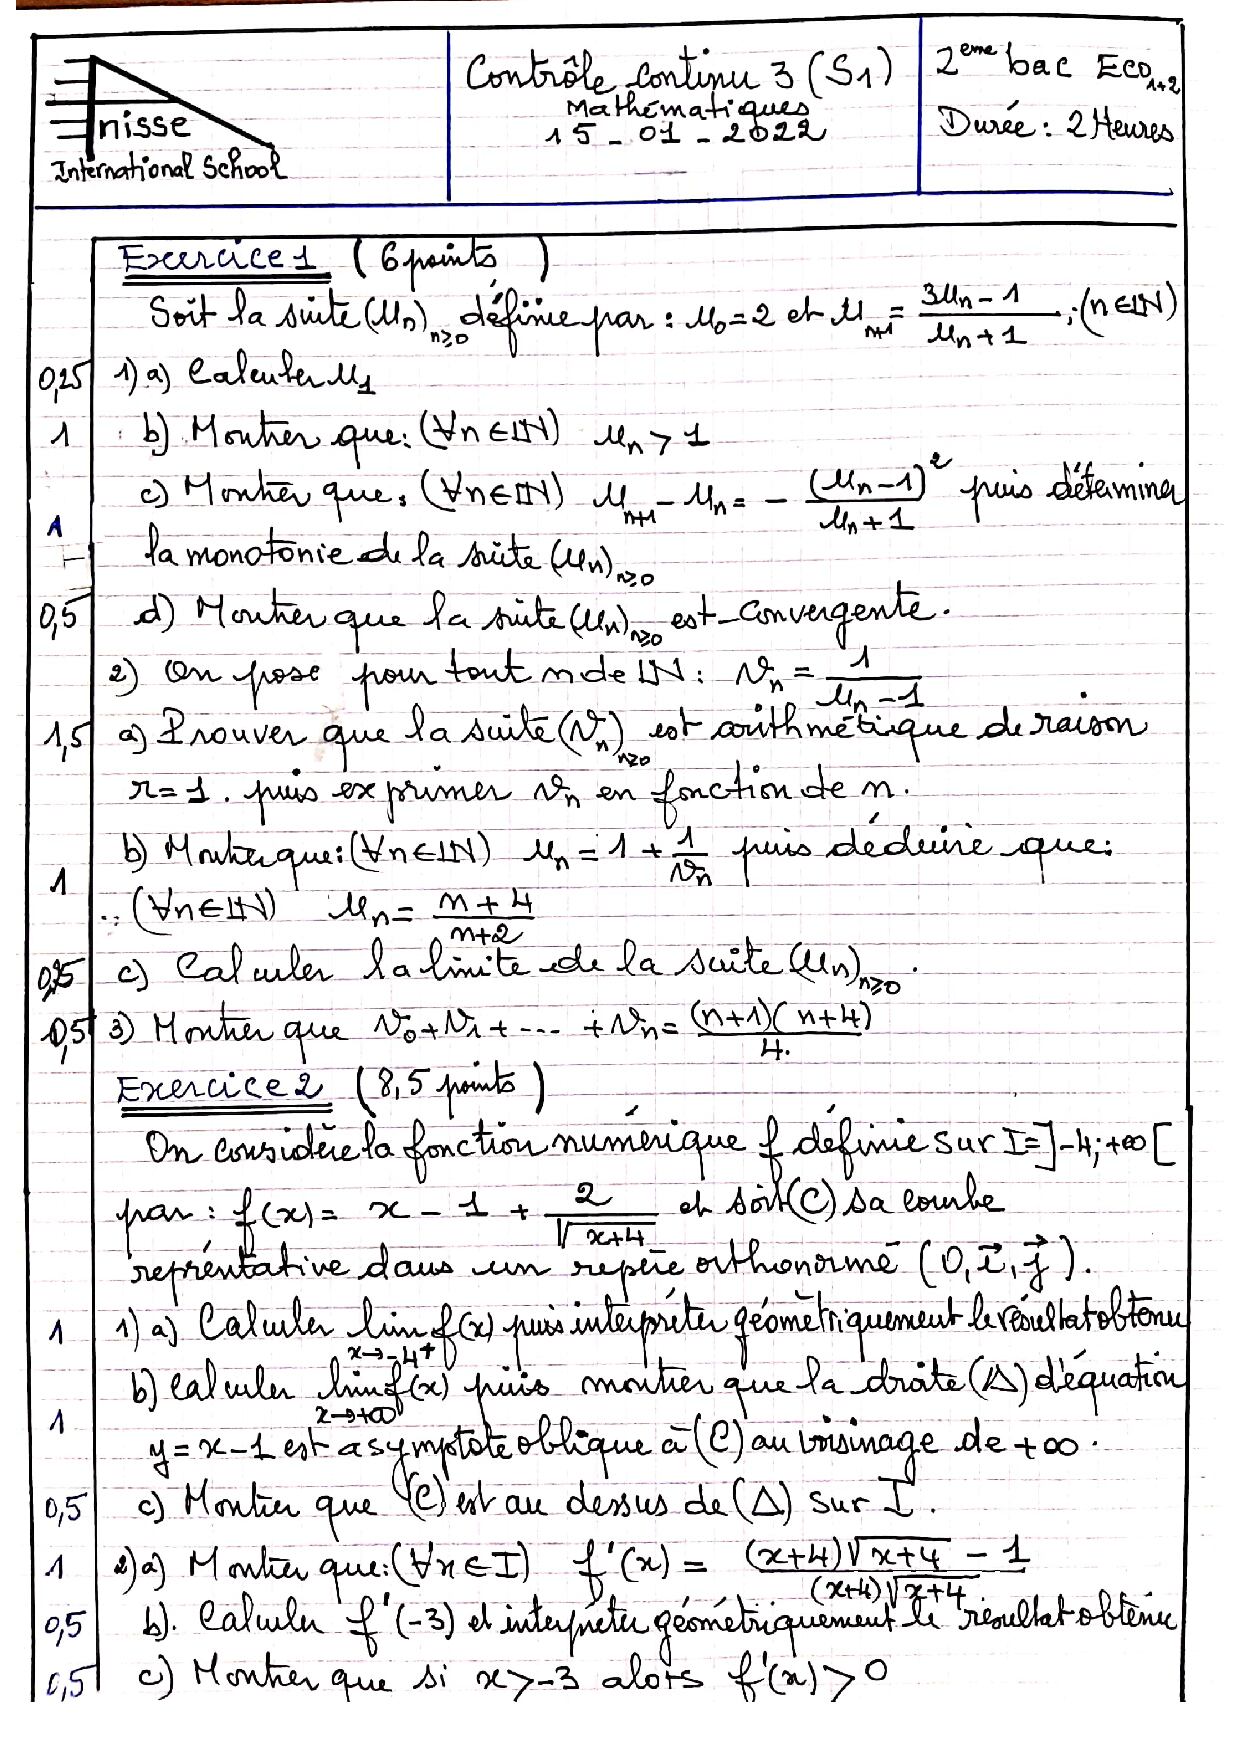 Enisse
International School
Contrôle continu 3 (S1)
Mathématiques
15-01-2022
2eme bac Eco1+2
Durée : 2 Heures
Exercice 1 (6 points)
Soit la suite (Un)n≥0 définie par : u0 = 2 et Un+1 = (3Un - 1)/(Un + 1) ; (n∈IN)
0,25 1) a) Calculer U1
1 b) Montrer que : (∀n∈IN) un > 1
c) Montrer que : (∀n∈IN) un+1 - un = - (un-1)²/(un+1) puis déterminer
1 la monotonie de la suite (un)n≥0
0,5 d) Montrer que la suite (un)n≥0 est convergente.
2) On pose pour tout n de IN : Vn = 1/(Un - 1)
1,5 a) Prouver que la suite (Vn)n≥0 est arithmétique de raison
r = 1. puis exprimer Vn en fonction de n.
b) Montrer que : (∀n∈IN) un = 1 + 1/Vn puis déduire que :
1 (∀n∈IN) un = (n+4)/(n+2)
c) Calculer la limite de la suite (un)n≥0.
0,5 3) Montrer que V0 + V1 + --- + Vn = (n+1)(n+4)/4.
Exercice 2 (8,5 points)
On considère la fonction numérique f définie sur I = ]-4; +∞[
par : f(x) = x - 1 + 2/√(x+4) et soit (C) sa courbe
repréntative dans un repère orthonormé (O, i⃗, j⃗).
1 1) a) Calculer lim x→-4+ f(x) puis interpréter géométriquement le résultat obtenu
b) Calculer lim x→+∞ f(x) puis montrer que la droite (Δ) d'équation
1 y = x-1 est asymptote oblique à (C) au voisinage de +∞.
0,5 c) Montrer que (C) est au dessus de (Δ) sur I.
1 2) a) Montrer que : (∀x∈I) f'(x) = ((x+4)√(x+4) - 1)/((x+4)√(x+4))
0,5 b). Calculer f'(-3) et interpréter géométriquement le résultat obtenu
0,5 c) Montrer que si x > -3 alors f'(x) > 0